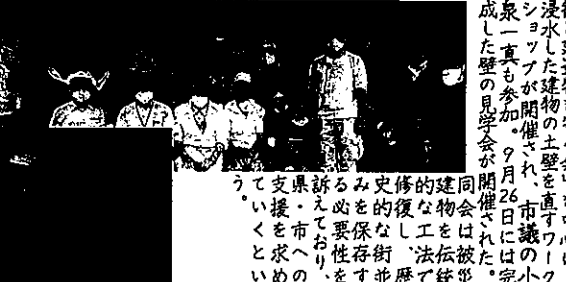 浸水した建物の土壁を直すワーク
ショップが開催され、市議の小
泉一真も参加。9月26日には完
成した壁の見学会が開催された。
同会は被災
建物を伝統
的な工法で
修復し、歴
史的な街並
みを保存す
る必要性を
訴えており、
県・市への
支援を求め
ていくとい
う。